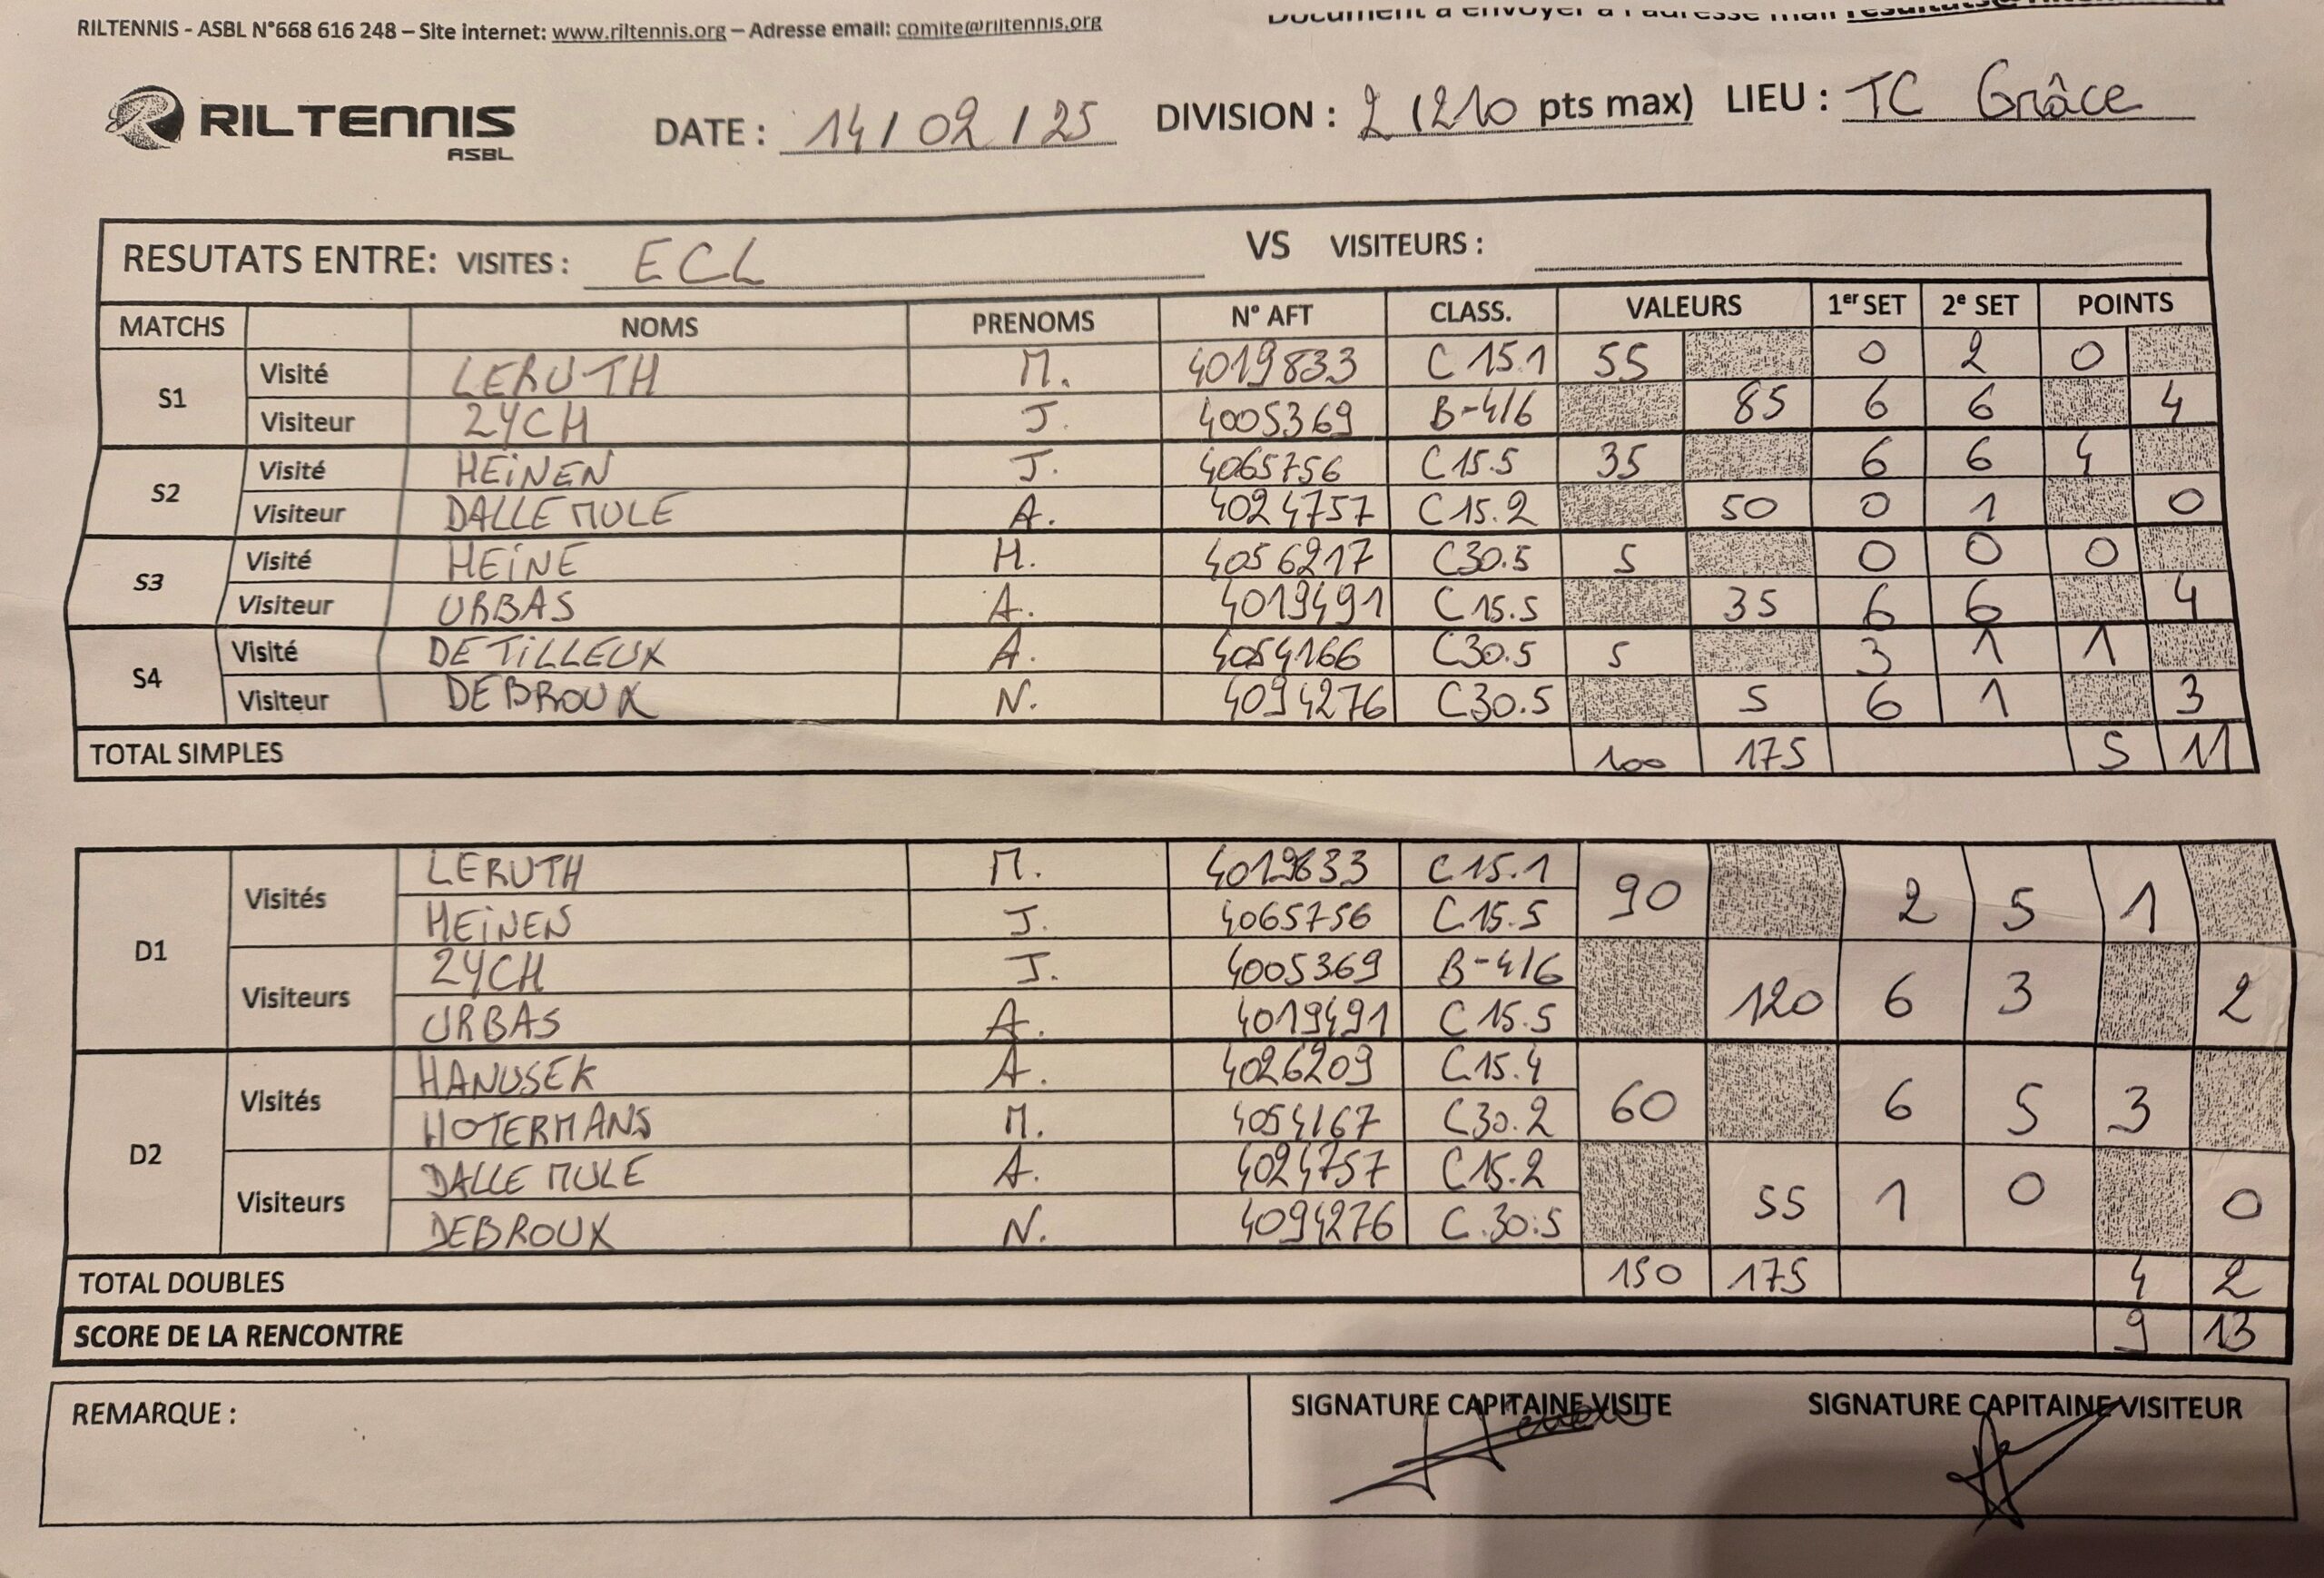 RILTENNIS - ASBL N°668 616 248 – Site internet: www.riltennis.org – Adresse email: comite@riltennis.org
Document à envoyer à l'adresse mail
RILTENNIS ASBL DATE : 14 / 02 / 25 DIVISION : 2 (210 pts max) LIEU : TC Grâce
RESUTATS ENTRE: VISITES : ECL VS VISITEURS :
MATCHS NOMS PRENOMS N° AFT CLASS. VALEURS 1er SET 2e SET POINTS
S1 Visité LERUTH M. 4019833 C 15.1 55 0 2 0
Visiteur ZYCH J. 4005369 B-4/6 85 6 6 4
S2 Visité HEINEN J. 4065756 C15.5 35 6 6 4
Visiteur DALLE MULE A. 4024757 C15.2 50 0 1 0
S3 Visité HEINE H. 4056217 C30.5 5 0 0 0
Visiteur URBAS A. 4019491 C15.5 35 6 6 4
S4 Visité DETILLEUX A. 4054166 C30.5 5 3 1 1
Visiteur DEBROUX N. 4094276 C30.5 5 6 1 3
TOTAL SIMPLES 100 175 5 11
D1 Visités LERUTH M. 4019833 C 15.1 90 2 5 1
HEINEN J. 4065756 C15.5
Visiteurs ZYCH J. 4005369 B-4/6 120 6 3 2
URBAS A. 4019491 C15.5
D2 Visités HANUSEK A. 4026209 C.15.4 60 6 5 3
HOTERMANS M. 4054167 C30.2
Visiteurs DALLE MULE A. 4024757 C15.2 55 1 0 0
DEBROUX N. 4094276 C.30.5
TOTAL DOUBLES 150 175 4 2
SCORE DE LA RENCONTRE 9 13
REMARQUE : SIGNATURE CAPITAINE VISITE SIGNATURE CAPITAINE VISITEUR